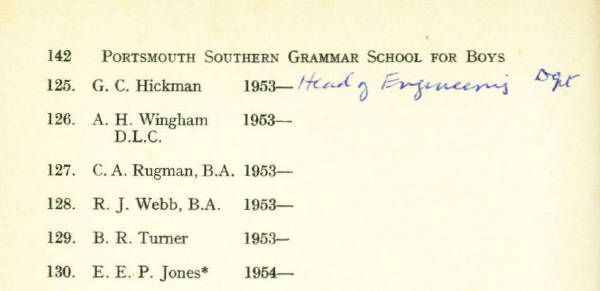 142 PORTSMOUTH SOUTHERN GRAMMAR SCHOOL FOR BOYS
125. G. C. Hickman 1953— Head of Engineering Dept
126. A. H. Wingham 1953—
D.L.C.
127. C. A. Rugman, B.A. 1953—
128. R. J. Webb, B.A. 1953—
129. B. R. Turner 1953—
130. E. E. P. Jones* 1954—